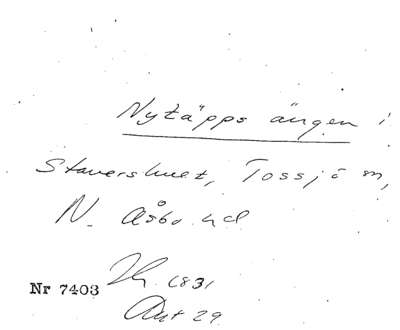 Nytäpps ängen i
Stavershult, Tossjö m,
N. Åsbo hd
1831
Nr 7403
Akt 29